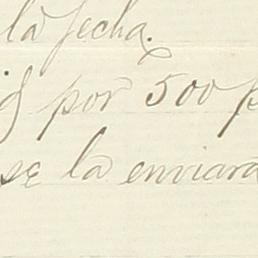 la fecha.
por 500 p
se la enviara